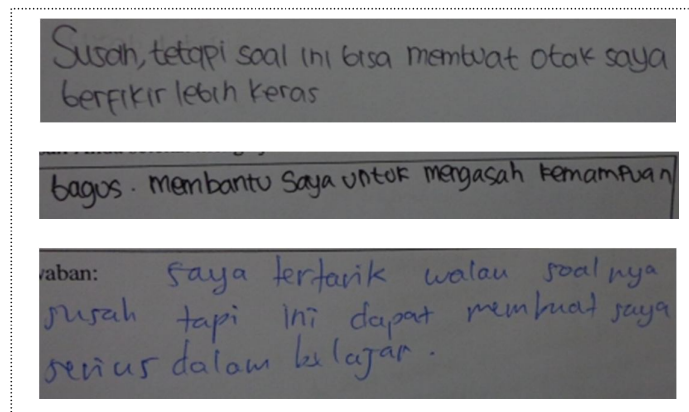 Susah, tetapi soal ini bisa membuat otak saya
berfikir lebih keras
bagus. membantu Saya untuk mengasah kemampuan
vaban: saya tertarik walau soalnya
susah tapi ini dapat membuat saya
serius dalam belajar.